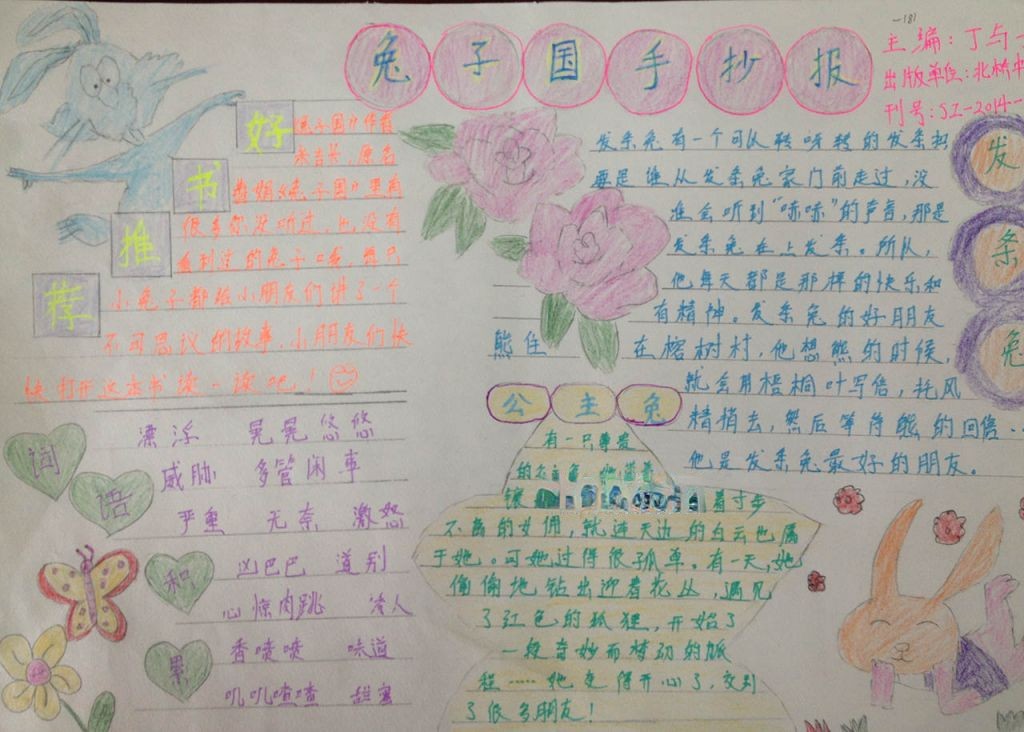 一181
兔子国手抄报
主编：丁与一
出版单位：北桥中
刊号：SZ-2014-
好书推荐
兔子国》作者
米吉卡，原名
《兔子国》里有
很多你没听过，也没有
看到过的兔子口袋，每只
小兔子都给小朋友们讲了一个
不可思议的故事，小朋友们快
快打开这本书读一读吧！
词语和累
漂浮 晃晃悠悠
威胁 多管闲事
严重 无奈 激怒
凶巴巴 道别
心惊肉跳 凌人
香喷喷 味道
叽叽喳喳 甜蜜
发条兔
发条兔有一个可以转呀转的发条扣
要是谁从发条兔家门前走过，没
准会听到“哧哧”的声音，那是
发条兔在上发条。所以，
他每天都是那样的快乐和
有精神。发条兔的好朋友
熊住 在榕树村，他想熊的时候，
就会用梧桐叶写信，托风
精捎去，然后等待熊的回信…
他是发条兔最好的朋友。
公主兔
有一只尊贵
的公主兔，她
着寸步
不离的女佣，就连天边的白云也属
于她。可她过得很孤单。有一天，她
偷偷地钻出迎着花丛，遇见
了红色的狐狸，开始了
一段奇妙而
程……她变得开心了，交到
了很多朋友！